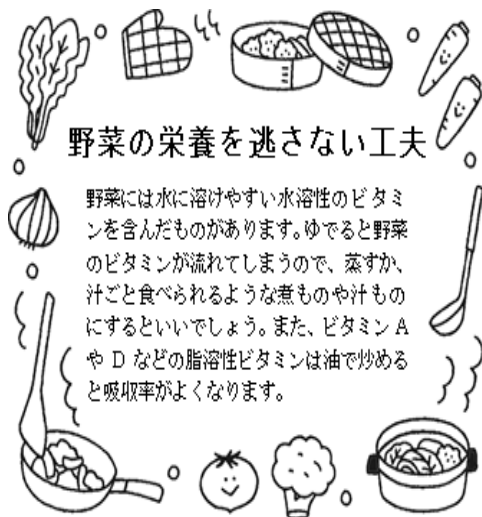 野菜の栄養を逃さない工夫
野菜には水に溶けやすい水溶性のビタミ
ンを含んだものがあります。ゆでると野菜
のビタミンが流れてしまうので、蒸すか、
汁ごと食べられるような煮ものや汁もの
にするといいでしょう。また、ビタミン A
や D などの脂溶性ビタミンは油で炒める
と吸収率がよくなります。